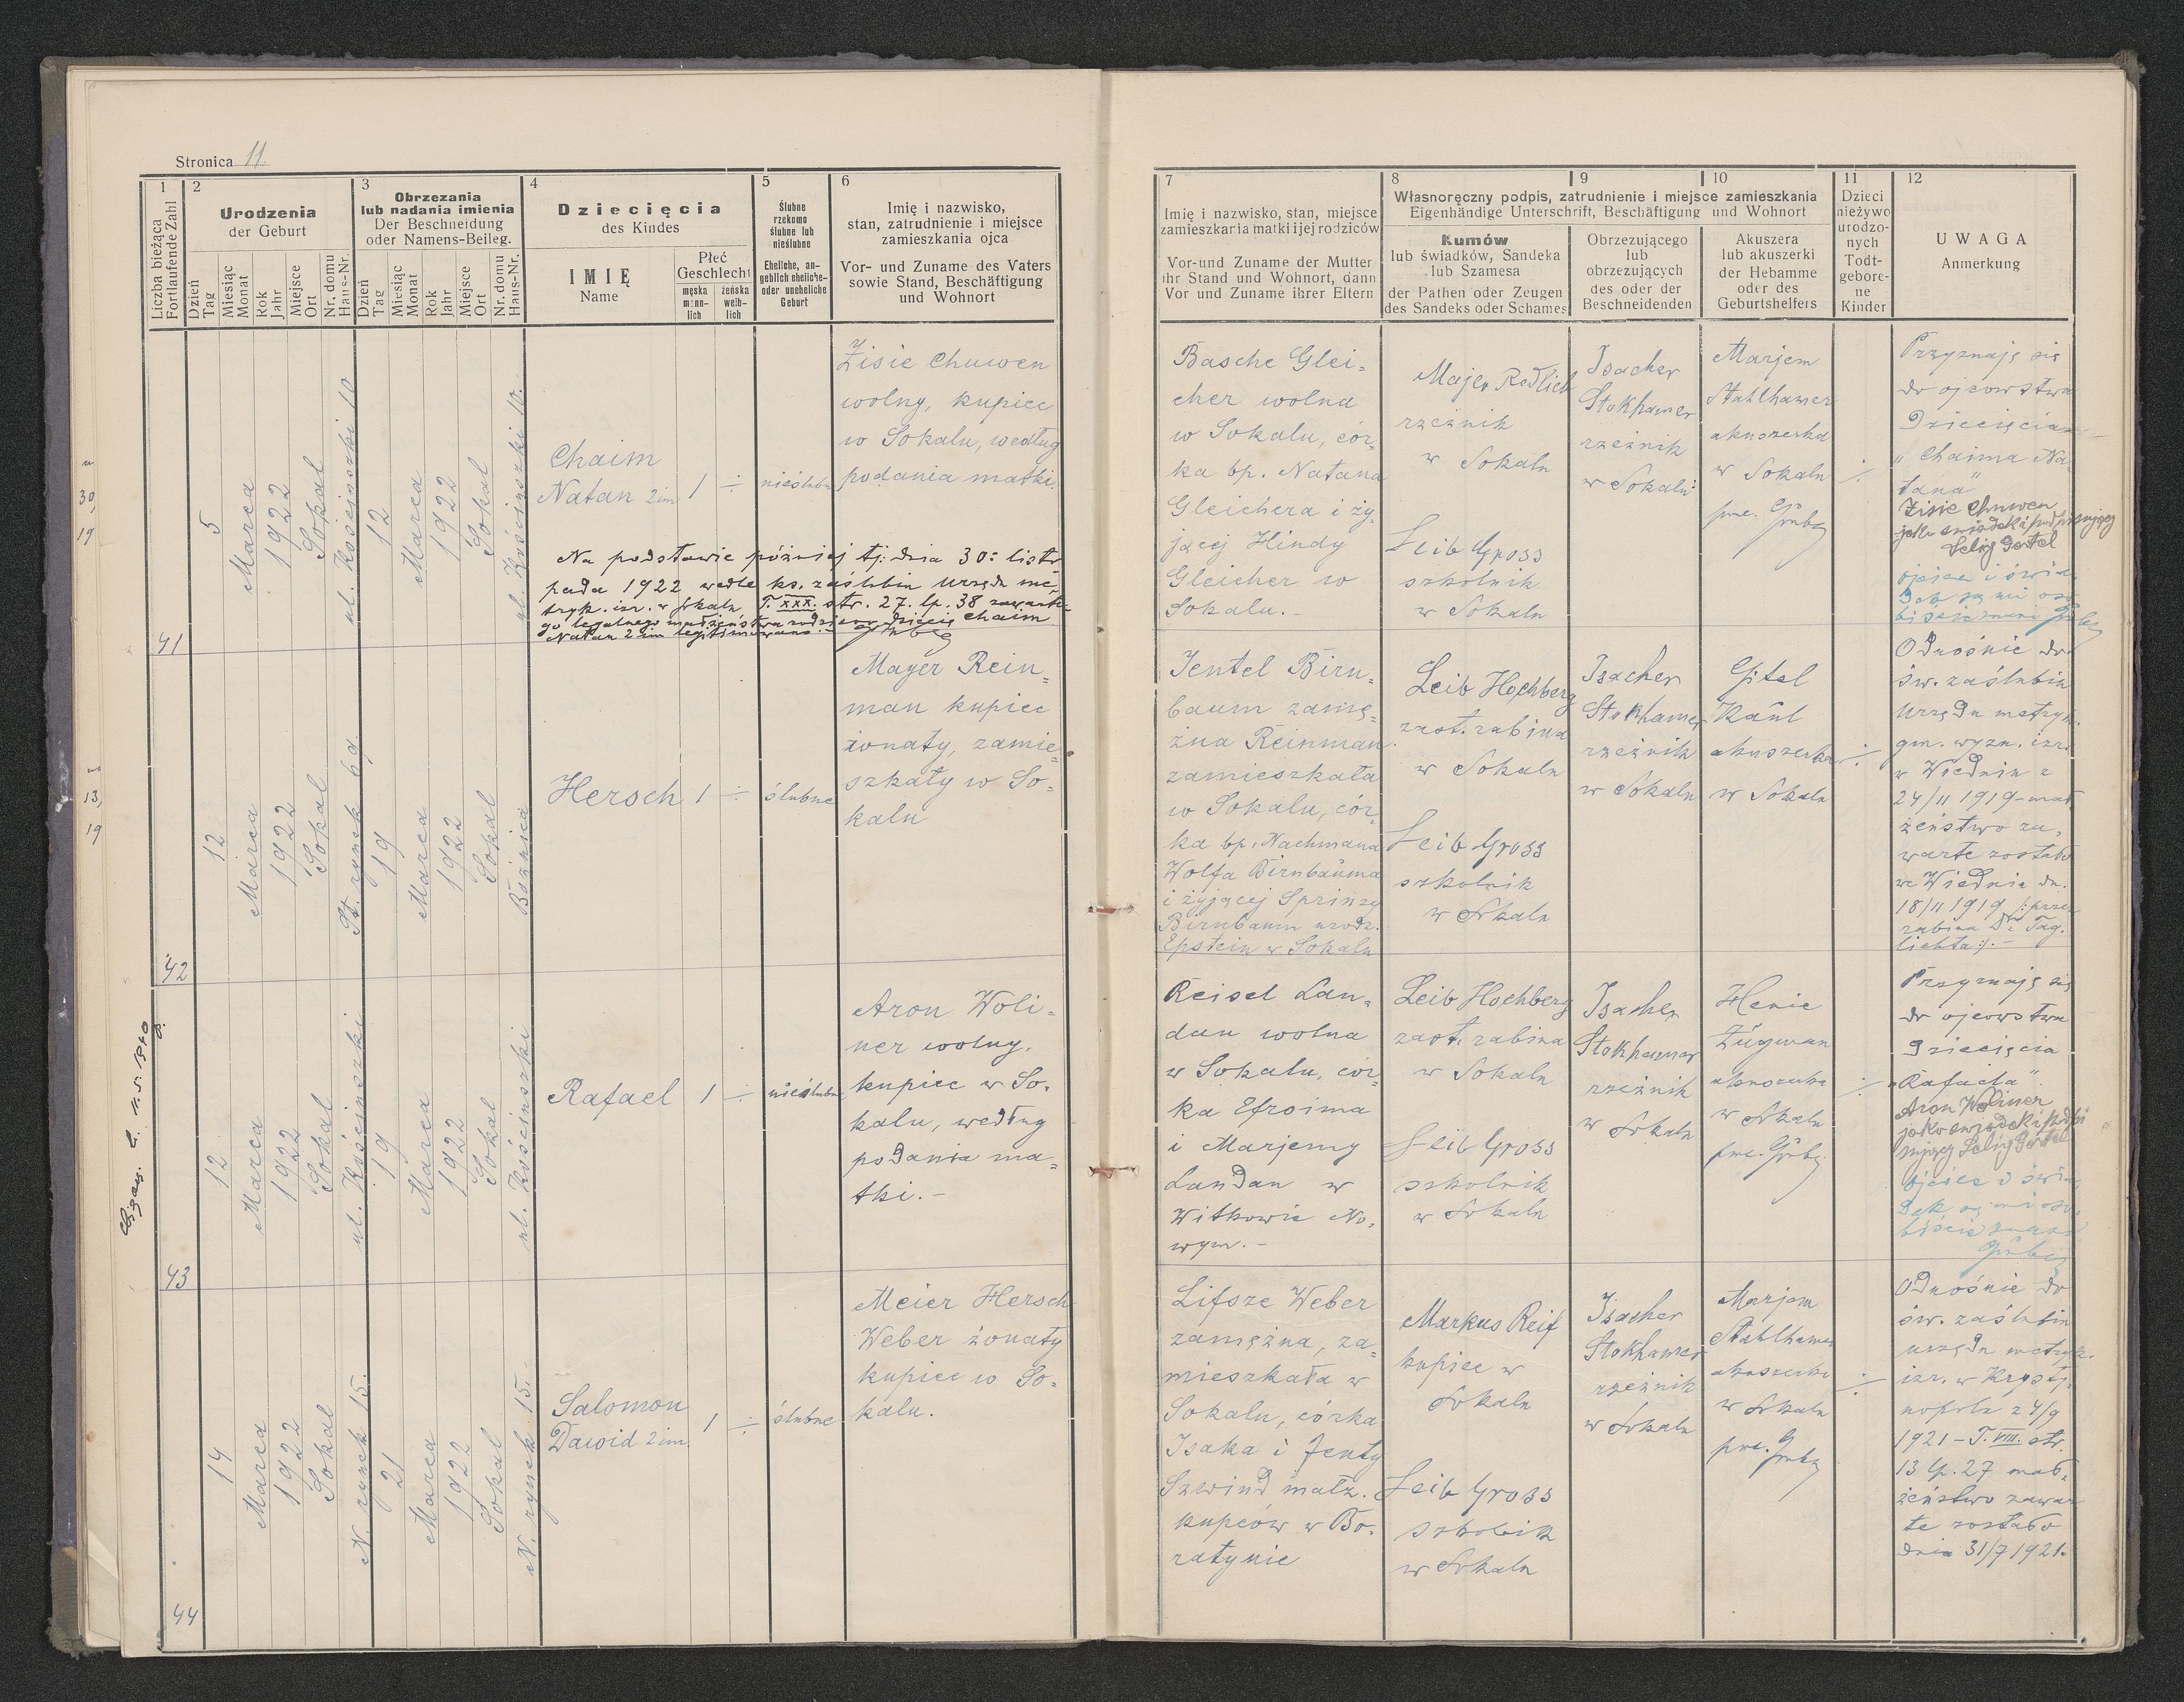 Stronica 11.
1
Liczba bieżąca
Fortlaufende Zahl
2
Urodzenia
der Geburt
Dzień
Tag
Miesiąc
Monat
Rok
Jahr
Miejsce
Ort
Nr. domu
Haus-Nr.
3
Obrzezania
lub nadania imienia
Der Beschneidung
oder Namens-Beileg.
Dzień
Tag
Miesiąc
Monat
Rok
Jahr
Miejsce
Ort
Nr. domu
Haus-Nr.
4
Dziecięcia
des Kindes
IMIĘ
Name
Płeć
Geschlecht
męska
männ-
lich
żeńska
weib-
lich
5
Ślubne
rzekomo
ślubne lub
nieślubne
Eheliche, an-
geblich eheliche-
oder uneheliche
Geburt
6
Imię i nazwisko,
stan, zatrudnienie i miejsce
zamieszkania ojca
Vor- und Zuname des Vaters
sowie Stand, Beschäftigung
und Wohnort
7
Imię i nazwisko, stan, miejsce
zamieszkania matki i jej rodziców
Vor-und Zuname der Mutter
ihr Stand und Wohnort, dann
Vor und Zuname ihrer Eltern
8
9
10
Własnoręczny podpis, zatrudnienie i miejsce zamieszkania
Eigenhändige Unterschrift, Beschäftigung und Wohnort
Kumów
lub świadków, Sandeka
lub Szamesa
der Pathen oder Zeugen
des Sandeks oder Schames
Obrzezującego
lub
obrzezujących
des oder der
Beschneidenden
Akuszera
lub akuszerki
der Hebamme
oder des
Geburtshelfers
11
Dzieci
nieżywo
urodzo-
nych
Todt-
gebore-
ne
Kinder
12
UWAGA
Anmerkung
41
5
Marca
1922
Sokal
ul. Kościuszki 10
12
Marca
1922
Sokal
ul. Kościuszki 10.-
Chaim
Natan 2im
1
÷
nieślubne
Zisie Chuwen
wolny, kupiec
w Sokalu, według
podania matki.
Na podstawie później tj. dnia 30: listo
pada 1922 wedle ks. zaślubin Urzędu me-
tryk. izr. w Sokalu, T. XXX. str. 27. lp. 38 zawarte-
go legalnego małżeństwa rodziców dziecię Chaim
Natan 2 im legitimowano.-
Basche Glei-
cher wolna
w Sokalu, cór-
ka bp. Natana
Gleichera i ży-
jącej Hindy
Gleicher w
Sokalu.-
Majer Redlich
rzeźnik
w Sokalu
Leib Gross
szkolnik
w Sokalu
Isacher
Stokhamer
rzeźnik
w Sokalu
Marjem
Stahlhamer
akuszerka
w Sokalu
÷
Przyznaję się
do ojcowstwa
Dziecięcia
"Chaima Na-
tana"
Zisie Chuwen
jako swiadek i podpisujący
Selig Dortel
ojciec i świa-
dek są mi oso-
biście znani
42
12
Marca
1922
Sokal
St. rynek 69.
19
Marca
1922
Sokal
Bóżnica
Hersch
1
÷
ślubne
Mayer Rein-
man kupiec
żonaty, zamie-
szkały w So-
kalu
Jentel Birn-
baum zamę-
żna Reinman
zamieszkała
w Sokalu, cór-
ka bp. Nachmana
Wolfa Birnbauma
i żyjącej Sprinzy
Birnbaum urodz.
Epstein w Sokalu
Leib Hochberg
zast. rabina
w Sokalu
Leib Gross
szkolnik
w Sokalu
Isacher
Stokhamer
rzeźnik
w Sokalu
Gitel
Kaul
akuszerka
w Sokalu
÷
Odnośnie do
św. zaślubin
Urzędu metryk.
gm. wyzn. izr.
w Wiedniu z
24/11 1919-mał
żeństwo za-
warte zostało
we Wiedniu dn.
18/11 1919 /:przez
rabina Dr Tag-
lichta:/.-
43
12
Marca
1922
Sokal
ul. Kościuszki
19
Marca
1922
Sokal
ul. Kościuszki
Rafael
1
÷
nieślubne
Aron Woli-
ner wolny,
kupiec w So-
kalu, według
podania ma-
tki.-
Reisel Lan-
dau wolna
w Sokalu, cór-
ka Efroima
i Marjemy
Landau w
Witkowie No-
wym.-
Leib Hochberg
zast. rabina
w Sokalu
Leib Gross
szkolnik
w Sokalu
Isacher
Stokhamer
rzeźnik
w Sokalu
Henie
Zugman
akuszerka
w Sokalu
÷
Przyznaję się
do ojcowstwa
Dziecięcia
"Rafaela"
Aron Woliner
jako swiadek i podpi
sujący Selig Dortel
ojciec i świa-
dek są mi oso-
biście znani
44
14
Marca
1922
Sokal
N. rynek 15.
21
Marca
1922
Sokal
N. rynek 15.-
Salomon
Dawid 2im.
1
÷
ślubne
Meier Hersch
Weber żonaty
kupiec w So-
kalu.
Lifsze Weber
zamężna, za-
mieszkała w
Sokalu, córka
Isaka i Jenty
Szwind małż.
kupców w Bo-
ratynie
Markus Reif
kupiec w
Sokalu
Leib Gross
szkolnik
w Sokalu
Isacher
Stokhamer
rzeźnik
w Sokalu
Marjem
Stahlhamer
akuszerka
w Sokalu
÷
Odnośnie do
św. zaślubin
urzędu metryk.
izr. w Krysty-
nopolu z 4/9
1921-T. VIII. str.
13 lp. 27 mał-
żeństwo zawar
te zostało
dnia 31/7 1921.